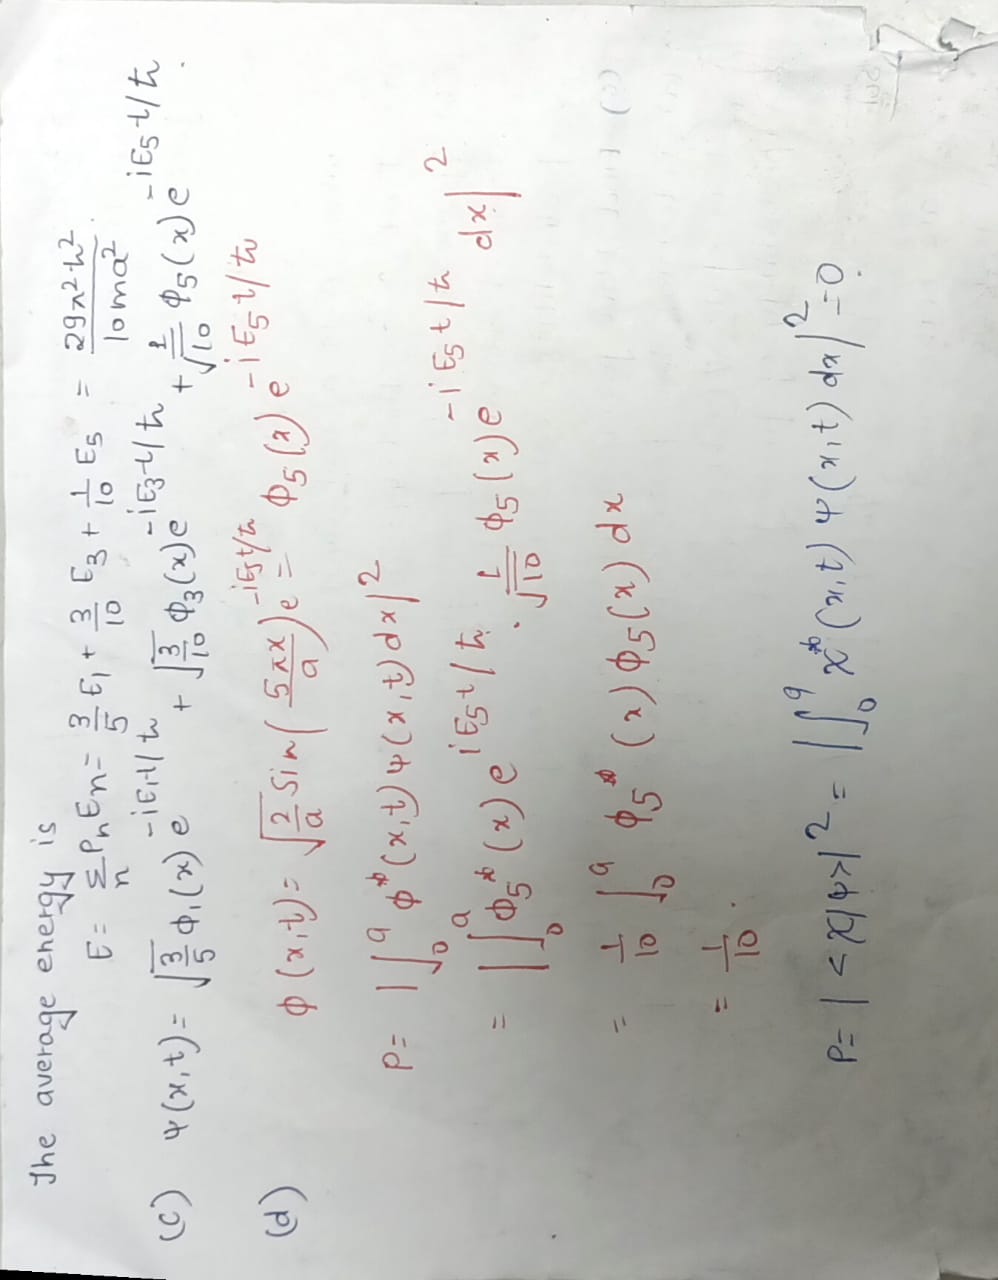 The average energy is
E = Σ_n P_n E_n = 3/5 E₁ + 3/10 E₃ + 1/10 E₅ = 29π²ħ²/10ma².
(c) ψ(x,t) = √(3/5) ϕ₁(x) e^(-iE₁t/ħ) + √(3/10) ϕ₃(x) e^(-iE₃t/ħ) + 1/√10 ϕ₅(x) e^(-iE₅t/ħ).
(d) ϕ(x,t) = √(2/a) Sin(5πx/a) e^(-iE₅t/ħ) = ϕ₅(x) e^(-iE₅t/ħ)
P = |∫₀^a ϕ*(x,t) ψ(x,t) dx|²
= |∫₀^a ϕ₅*(x) e^(iE₅t/ħ) . 1/√10 ϕ₅(x) e^(-iE₅t/ħ) dx|²
= 1/10 ∫₀^a ϕ₅*(x) ϕ₅(x) dx
= 1/10 .
P = |<χ|ψ>|² = |∫₀^a χ*(x,t) ψ(x,t) dx|² = 0.